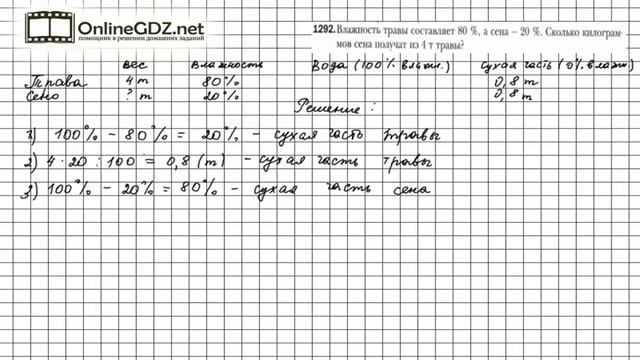 OnlineGDZ.net
помощник в решении домашних заданий
1292. Влажность травы составляет 80 %, а сена – 20 %. Сколько килограм-
мов сена получат из 4 т травы?
вес влажность Вода (100% влажн.) сухая часть (0% влажн)
Трава 4 т 80% 0,8 т
Сено ? т 20% 0,8 т
Решение :
1) 100% - 80% = 20% - сухая часть травы
2) 4 · 20 : 100 = 0,8 (т) - сухая часть травы
3) 100% - 20% = 80% - сухая часть сена